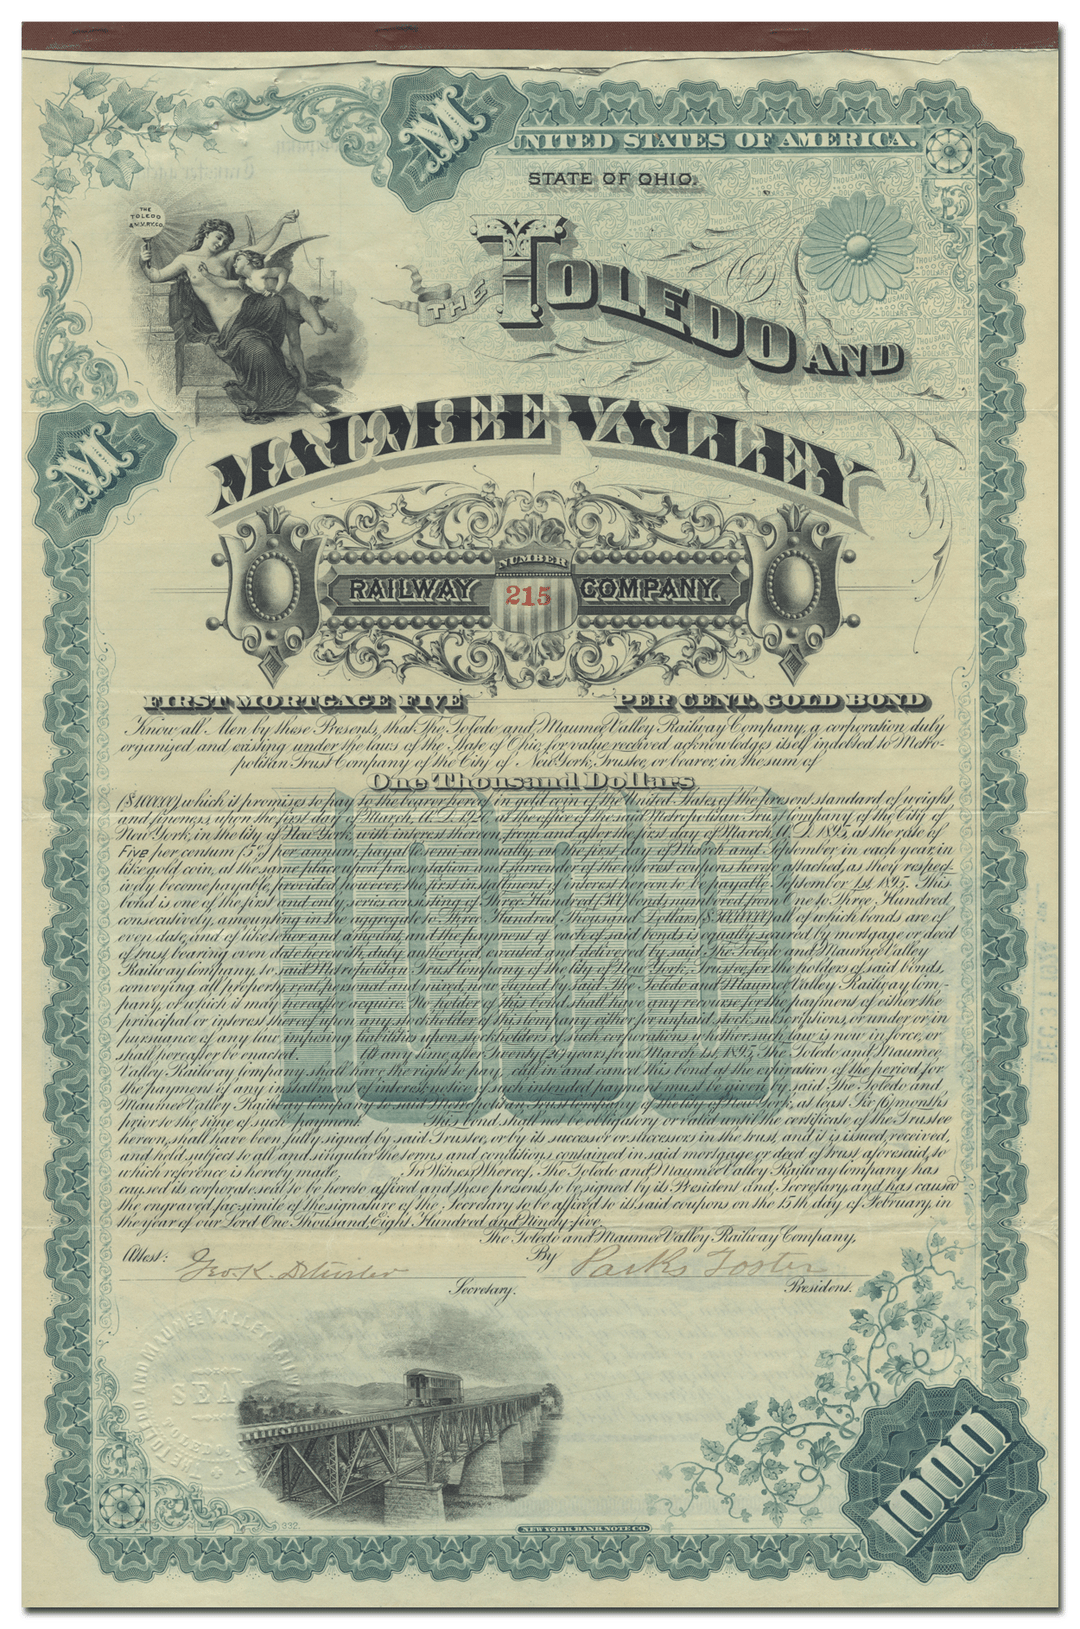 M
UNITED STATES OF AMERICA.
STATE OF OHIO.
THE
TOLEDO
& M.V.RY.CO.
THE TOLEDO AND
M
MAUMEE VALLEY
NUMBER
RAILWAY 215 COMPANY.
FIRST MORTGAGE FIVE PER CENT. GOLD BOND
Know all Men by these Presents, that The Toledo and Maumee Valley Railway Company, a corporation duly
organized and existing under the laws of the State of Ohio, for value received acknowledges itself indebted to Metro-
politan Trust Company of the City of New York, Trustee, or bearer, in the sum of
One Thousand Dollars
($1000.00) which it promises to pay to the bearer hereof in gold coin of the United States, of the present standard of weight
and fineness, upon the first day of March, A.D. at the office of the said Metropolitan Trust Company of the City of
New York, in the City of New York, with interest thereon, from and after the first day of March, A.D. 1895, at the rate of
Five per centum (5%) per annum, payable semi-annually, on the first day of March and September in each year, in
like gold coin, at the same place upon presentation and surrender of the interest coupons hereto attached, as they respect-
ively become payable, provided however, the first installment of interest hereon to be payable September 1st, 1895. This
bond is one of the first and only series consisting of Three Hundred (300) bonds, numbered from One to Three Hundred,
consecutively, amounting in the aggregate to Three Hundred Thousand Dollars ($300,000.00) all of which bonds are of
even date, and of like tenor and amount, and the payment of each of said bonds is equally secured by mortgage or deed
of trust, bearing even date herewith, duly authorized, executed and delivered by said The Toledo and Maumee Valley
Railway Company, to said Metropolitan Trust Company of the City of New York, Trustee, for the holders of said bonds,
conveying all property, real, personal and mixed, now owned by said The Toledo and Maumee Valley Railway Com-
pany, or which it may hereafter acquire. No holder of this bond shall have any recourse for the payment of either the
principal or interest thereof upon any stockholder of this company either for unpaid stock subscriptions, or under or in
pursuance of any law, imposing liabilities upon stockholders of such corporations whether such law is now in force, or
shall hereafter be enacted. At any time after Twenty (20) years from March 1st, 1895, The Toledo and Maumee
Valley Railway Company shall have the right to pay, call in and cancel this bond at the expiration of the period for
the payment of any installment of interest; notice of such intended payment must be given by said The Toledo and
Maumee Valley Railway Company to said Metropolitan Trust Company of the City of New York, at least Six (6) months
prior to the time of such payment. This bond shall not be obligatory or valid until the certificate of the Trustee
hereon, shall have been fully signed by said Trustee, or by its successor or successors in the trust, and it is issued, received,
and held subject to all and singular the terms and conditions contained in said mortgage or deed of trust aforesaid, to
which reference is hereby made. In Witness Whereof, The Toledo and Maumee Valley Railway Company has
caused its corporate seal to be hereto affixed and these presents, to be signed by its President and Secretary, and has caused
the engraved facsimile of the signature of the Secretary to be affixed to its said coupons on the 15th day of February, in
the year of our Lord One Thousand, Eight Hundred and Ninety-five.
The Toledo and Maumee Valley Railway Company,
Attest: Geo. K. By Parks Foster
Secretary. President.
THE TOLEDO AND MAUMEE VALLEY RAILWAY
SEAL
TOLEDO
1000
NEW YORK BANK NOTE CO.